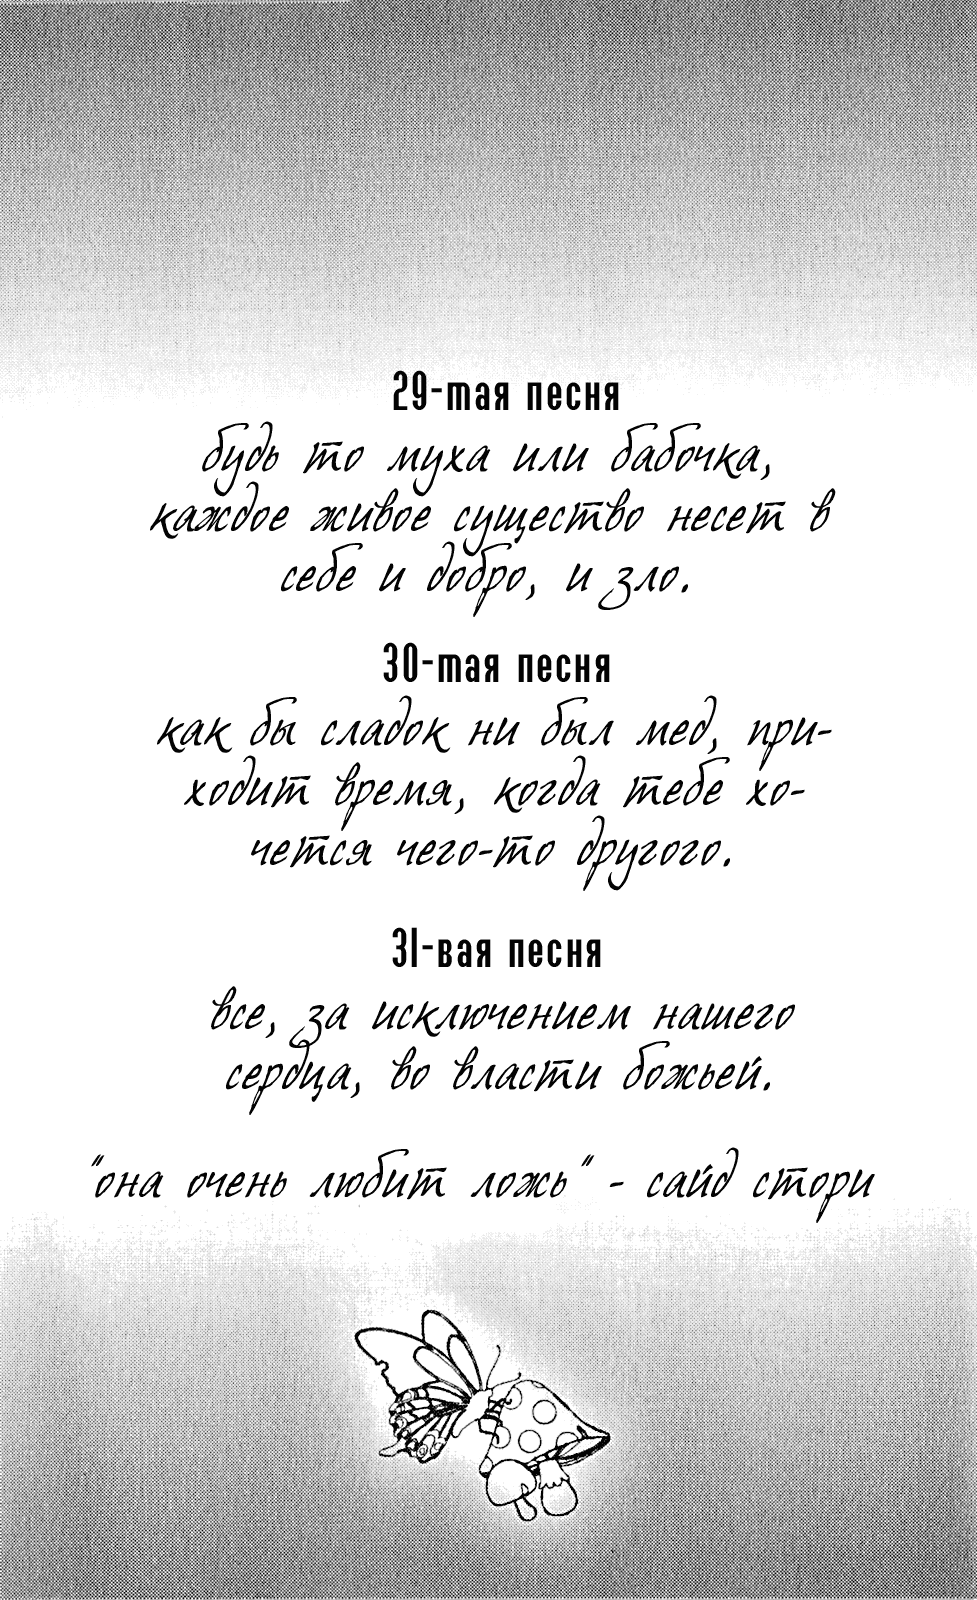 29-тая песня
будь то муха или бабочка,
каждое живое существо несет в
себе и добро, и зло.
30-тая песня
как бы сладок ни был мед, при-
ходит время, когда тебе хо-
чется чего-то другого.
31-вая песня
все, за исключением нашего
сердца, во власти божьей.
"она очень любит ложь" - сайд стори